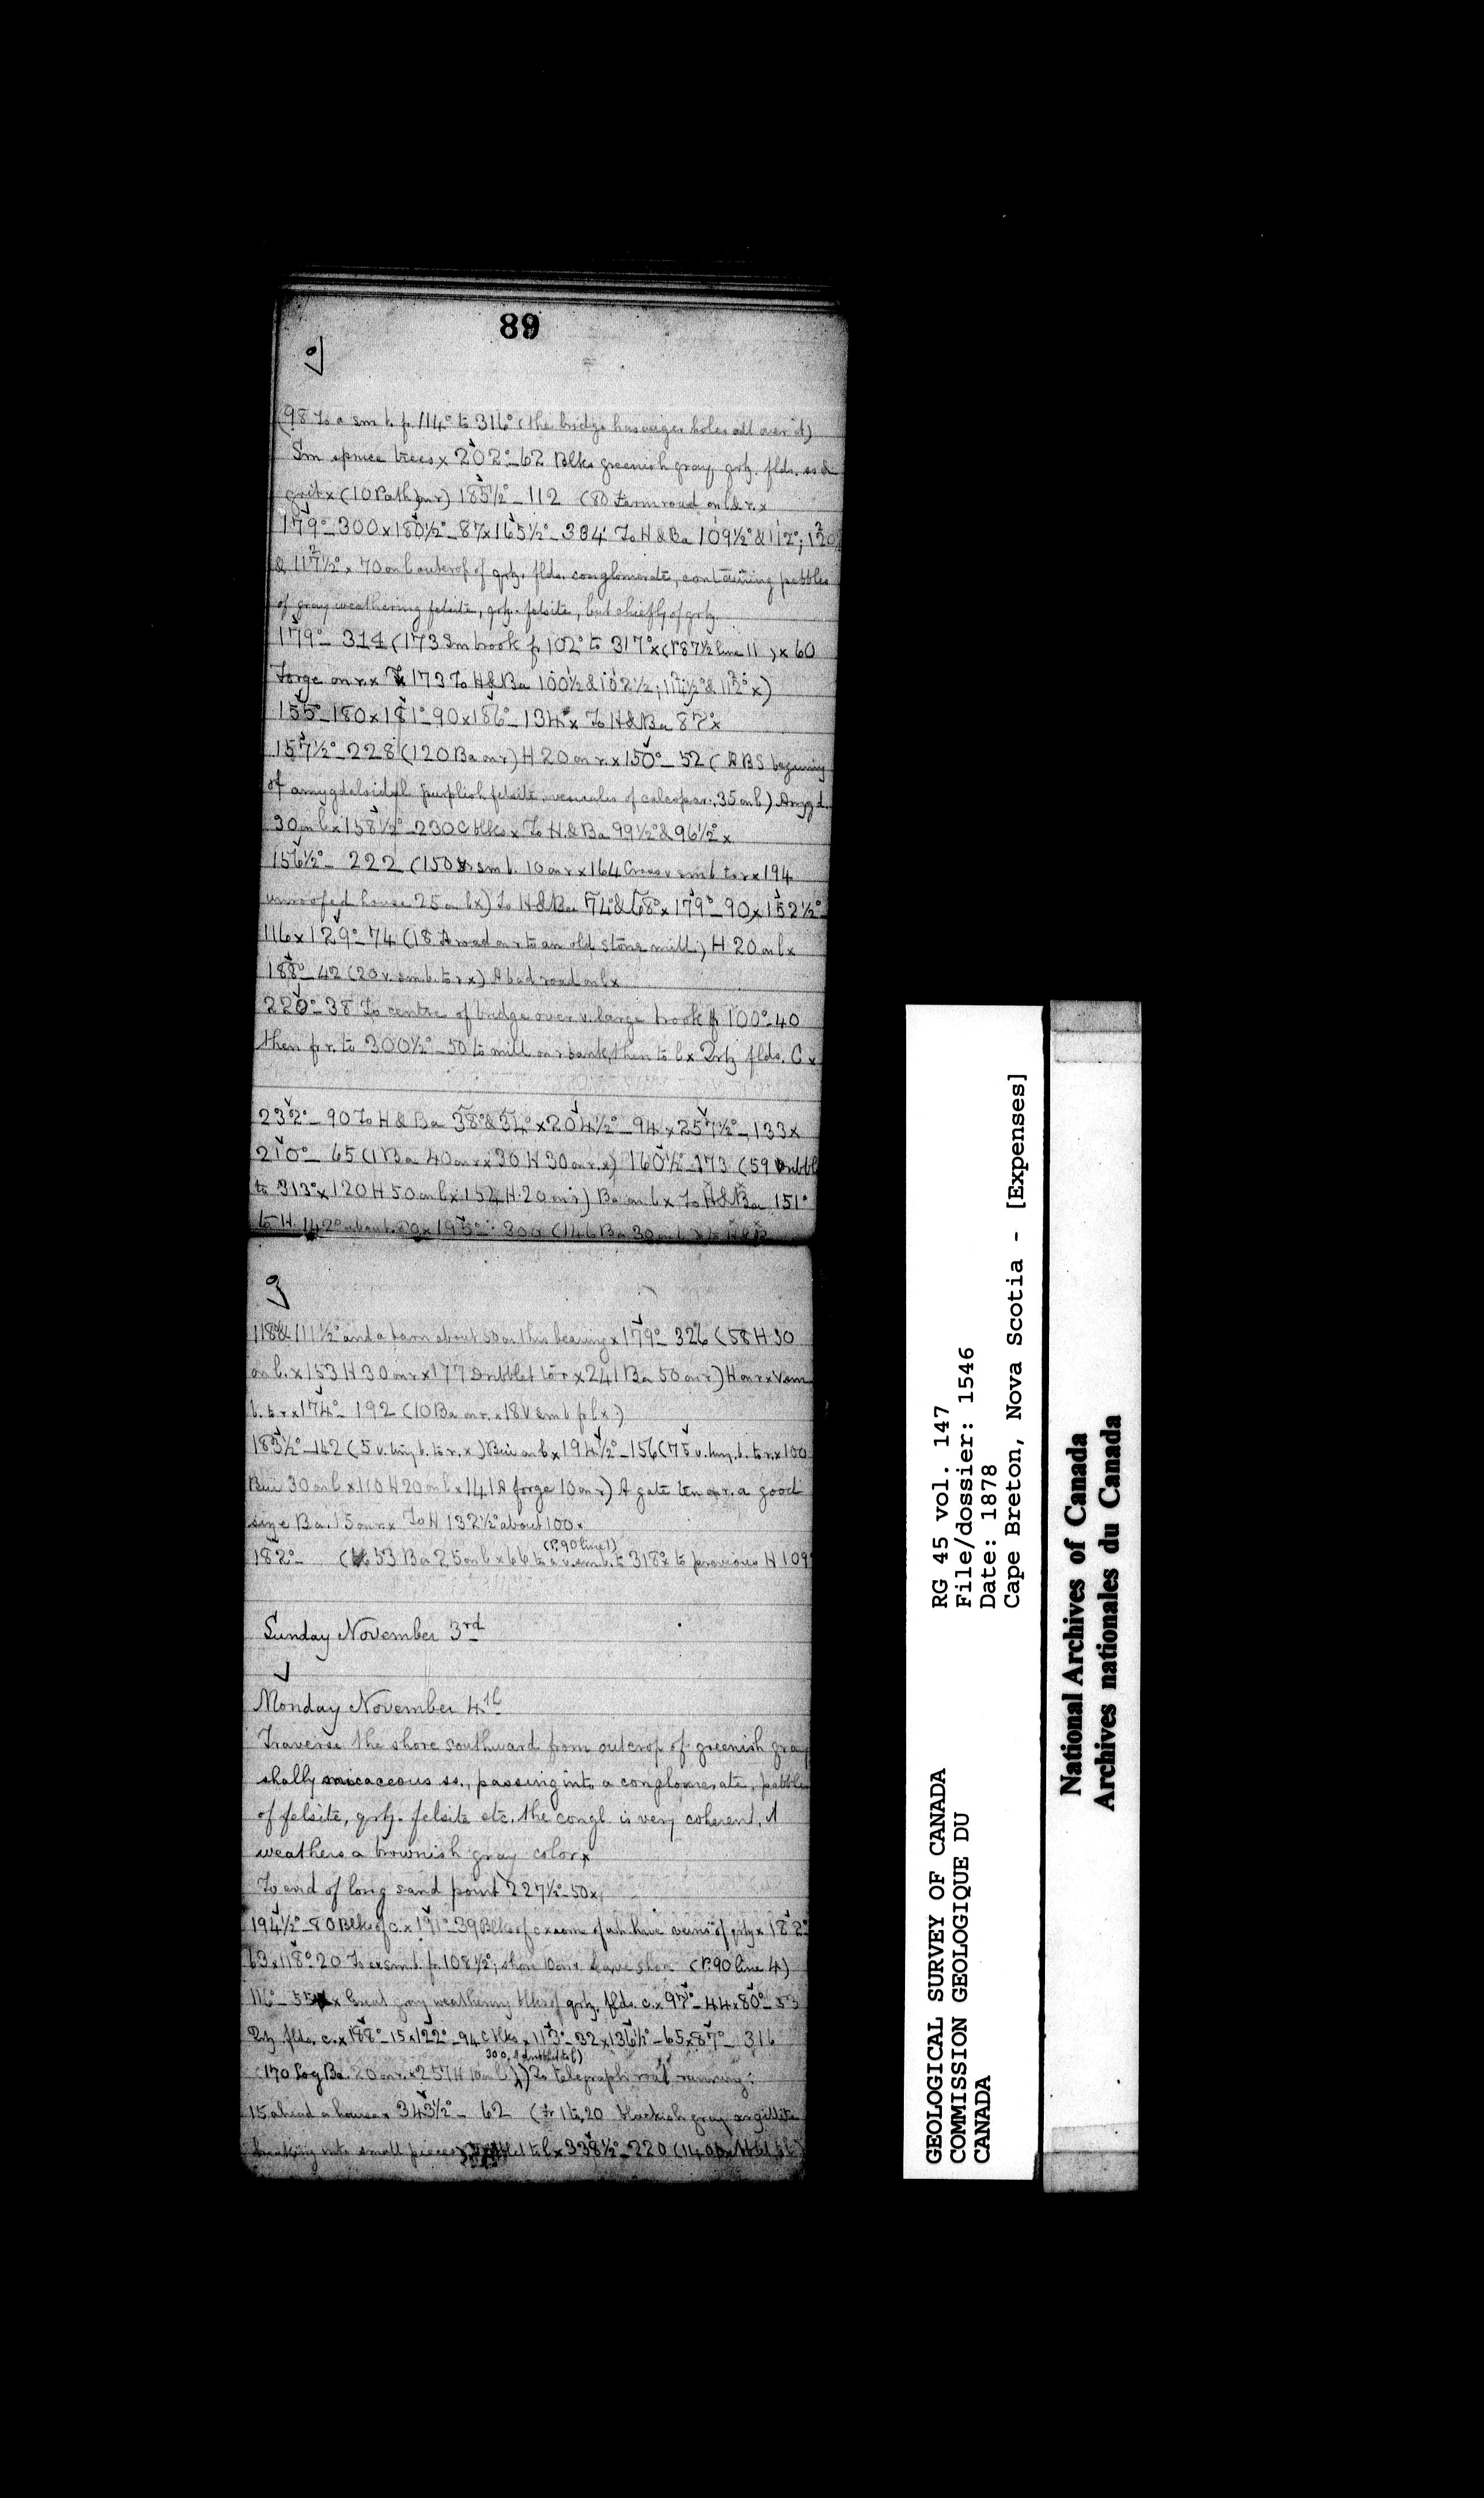 89
(98 To a sm b. fr 114° to 316° (the bridge has auger holes all over it)
Sm spruce trees x 202° _ 62 Blks greenish gray qrtz. flds. ss &
grit x (10 Path on r) 185½° _ 112 (80 Farm road on l & r. x
179° _ 300 x 180½° _ 87 x 165½° _ 334 To H & Ba 109½° & 112°; 120
& 117½° x 70 on l outcrop of qrtz. flds. conglomerate, containing pebbles
of gray weathering felsite, qrtz. felsite, but chiefly of qrtz.
179° _ 314 (173 Sm brook fr 102° to 317° x (P 87½ line 11 ) x 60
Forge on r. x 173 To H & Ba 100½ & 102½; 114½° & 112° x)
155° _ 180 x 181° _ 90 x 186° _ 134 x To H & Ba 87° x
157½° _ 228 (120 Ba on r) H 20 on r. x 150° _ 52 ( BS beginning
of amygdaloidal purplish felsite, vesicules of calcspar; 35 on l) Amygd.
30 on l x 158½° _ 230 C blks x To H. & Ba 99½° & 96½° x
156½° _ 222 (150 sm b. 10 on r x 164 Cross v sm b to r x 194
unroofed house 25 on l x) To H & Ba 74° & 68° x 179° _ 90 x 152½° _
116 x 129° _ 74 (18 A road on r to an old stone mill) H 20 on l x
188° _ 42 (20 v. sm b. to r x) A bad road on l x
220° _ 38 To centre of bridge over v. large brook fr 100° _ 40
then fr r. to 300½° _ 50 to mill on r bank, then to l x Qrtz flds. C x
232° _ 90 To H & Ba 38° & 34° x 204½° _ 94 x 257½° _ 133 x
210° _ 65 (1 Ba 40 on r x 30 H 30 on r. x) 160½° _ 173 (59 Dribblet
to 313° x 120 H 50 on l x 152 H 20 on r) Ba on l x To H & Ba 151°
to H. 142° about 50 x 195° _ 300 (146 Ba 30 on l) to H & B
118° & 111½° and a barn about 50 on this bearing x 179° _ 326 (58 H 30
on l. x 153 H 30 on r x 177 Dribblet to r x 241 Ba 50 on r) H on r x V sm
b. to r x 174° _ 192 (10 Ba on r. x 18 V sm b fr l x )
183½° _ 142 (5 v. tiny b. to r. x ) on l x 194½° _ 156 (75 v. tiny. b. to r. x 100
30 on l x 110 H 20 on l x 141 A forge 10 on r) A gate ten on r. a good
size Ba. 15 on r x To H 132½° about 100 x
(P. 90 line 1)
182° _ ( 53 Ba 25 on l x 66 to a v. sm b. to 318° x to previous H 109°
Sunday November 3rd
Monday November 4th
Traverse the shore southward from outcrop of greenish gray
shally micaceous ss., passing into a conglomerate, pebbles
of felsite, qrtz. felsite etc. the congl. is very coherent, it
weathers a brownish gray color x
To end of long sand point 227½° _ 50 x
194½° _ 80 Blks of c. x 191° _ 39 Blks of c x some of wh. have veins of qrtz x 182°
63 x 118° 20 To ex sm. b. fr 108½°; shore 10 on r. Leave shore (P. 90 line 4)
116° _ 55 x Great gray weathering blks of qrtz. flds. c. x 97° _ 44 x 80° _ 53
Qrtz. flds. c. x 188° _ 15 x 122° _ 94 C blks x 113° _ 32 x 136½° _ 65 x 87° _ 316
300, A dribblet to l)
(170 Log Ba. 20 on r. x 257 H 10 on l x) To telegraph road running:
15 ahead a house x 343½° _ 62 (Fr 1 to 20 blackish gray argillite
breaking into small pieces) to l x 338½° _ 220 (140 Dribblet fr l)
GEOLOGICAL SURVEY OF CANADA
COMMISSION GEOLOGIQUE DU
CANADA
RG 45 vol. 147
File/dossier: 1546
Date: 1878
Cape Breton, Nova Scotia - [Expenses]
National Archives of Canada
Archives nationales du Canada